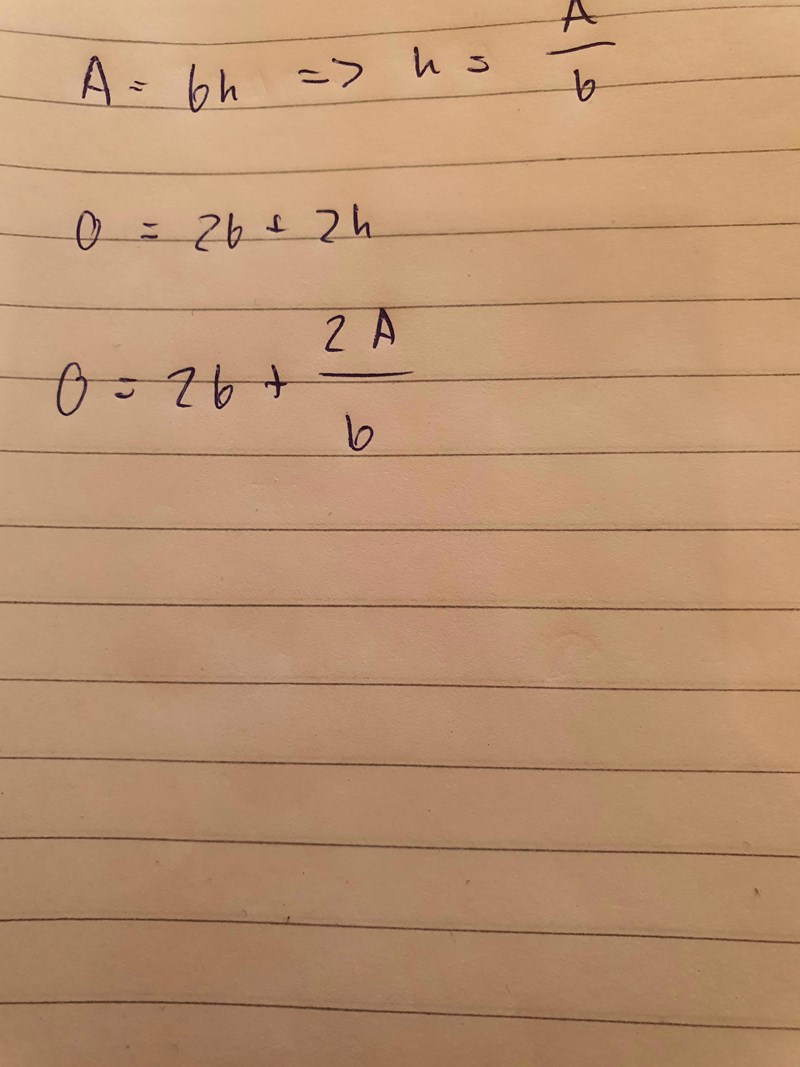 A = bh => h = A/b
O = 2b + 2h
O = 2b + 2A/b